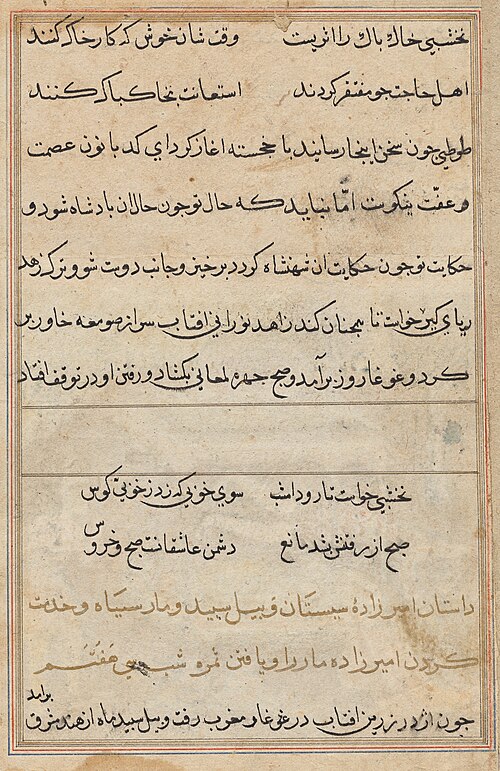 نخشبی خاک پاک را اثریست وقت شان خوش که کار خاک کنند
اهل حاجت چو مفتقر کردند استعانت بخاک پاک کنند
طوطی چون سخن اینجا رسانید با خجسته اغاز کرد ای کدبانو عصمت
و عفت نیکوست اما نباید که حال تو چون حال ان بادشاه شود و
حکایت تو چون حکایت ان شهنشاه کردد برخیز و جانب دوست شو و ترک زهد
ریای کیر خواست تا همچنان کند زاهد نورانی افتاب سر از صومعه خاور بر
کرد و غوغا روز برآمد و صبح چهره لمعانی بکشاد و رفتن او در توقف افتاد
نخشبی خواست تا رود امشب سوی خوبی که زد ز خوبی کوس
صبح از رفتنش شد مانع دشمن عاشقانست صبح و خروس
داستان امیرزاده سیستان و پیل سپید و مار سیاه و خدمت
کردن امیرزاده مار را و یافتن ثمره شب سی هفتم
چون اژدر زرین افتاب در غو غار مغرب رفت و پیل سپید ماه از هند مشرق
برامد